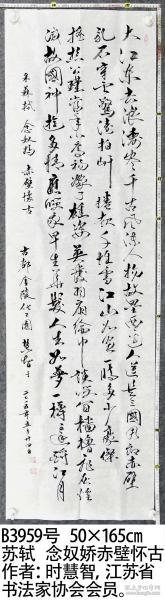 大江东去浪淘尽千古风流人物故垒西边人道是三国周郎赤壁
乱石穿空惊涛拍岸卷起千堆雪江山如画一时多少豪杰
遥想公瑾当年小乔初嫁了雄姿英发羽扇纶巾谈笑间樯橹灰飞烟
灭故国神游多情应笑我早生华发人生如梦一樽还酹江月
宋苏轼念奴娇赤壁怀古
古都金陵
B3959号 50×165cm
苏轼 念奴娇赤壁怀古
作者:时慧智,江苏省
书法家协会会员。